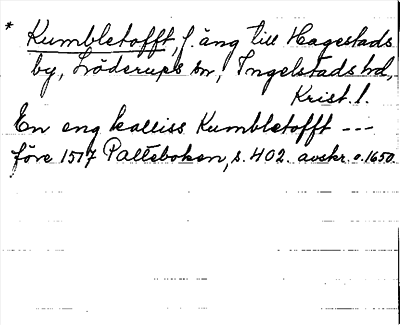 * Kumbletofft, f. äng till Hagestads
by, Löderups sn, Ingelstads hd,
Krist. l.
En eng kalliss Kumbletofft ---
före 1517 Palteboken, s. 402. avskr. o. 1650.